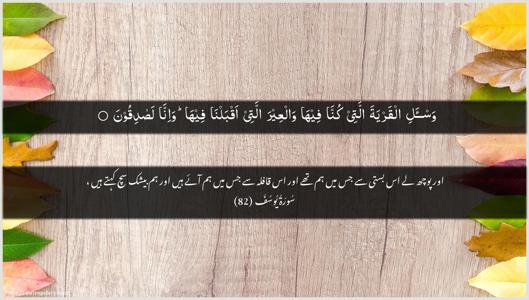 وَسْـَٔلِ الْقَرْيَةَ الَّتِیْ كُنَّا فِيْهَا وَالْعِيْرَ الَّتِیْۤ اَقْبَلْنَا فِيْهَا ؕ وَاِنَّا لَصٰدِقُوْنَ ○
اور پوچھ لے اس بستی سے جس میں ہم تھے اور اس قافلہ سے جس میں ہم آئے ہیں اور ہم بیشک سچ کہتے ہیں ،
سُوْرَةُ يُوسُف (82)